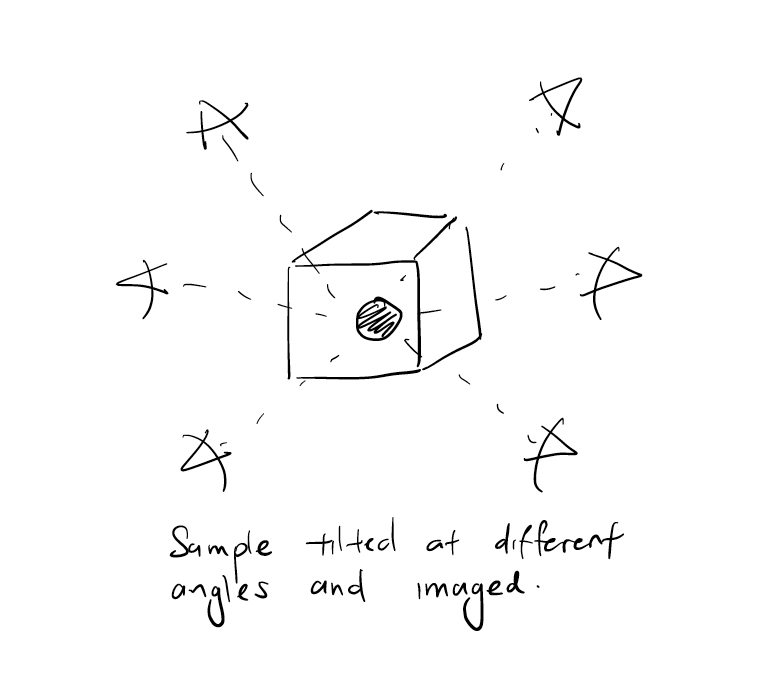 Sample tilted at different
angles and imaged.